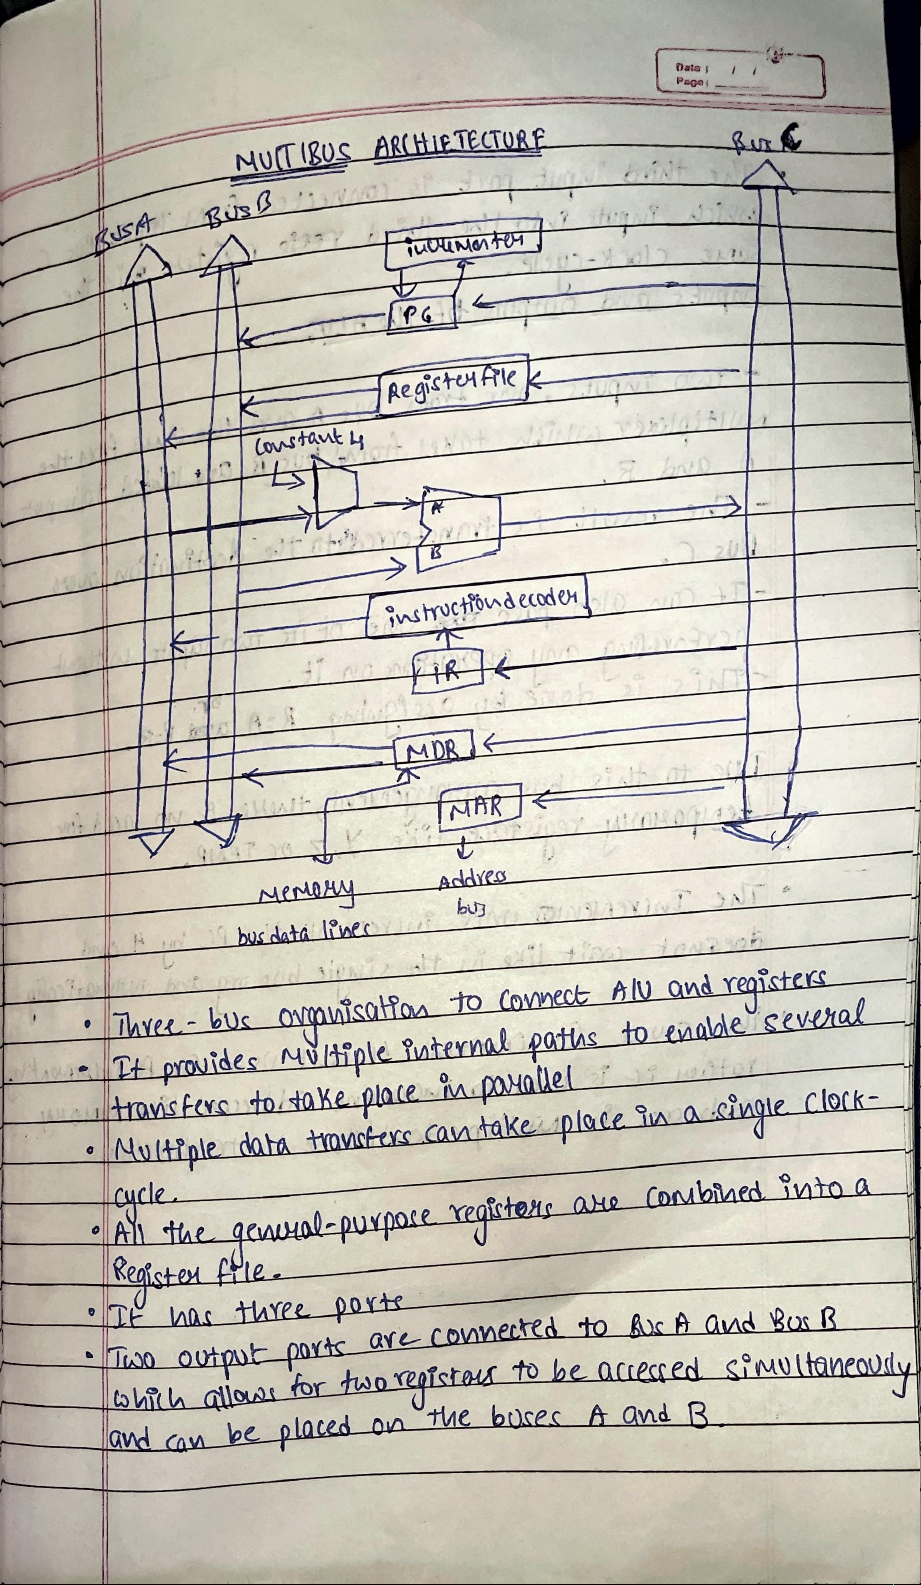 Date : / /
Page :
MULTIBUS ARCHIETECTURE
Bus C
Bus A
Bus B
incrementer
PC
Register file
Constant 4
A
B
instruction decoder
IR
MDR
MAR
Memory
bus data lines
Address
bus
• Three-bus organisation to connect ALU and registers
• It provides multiple internal paths to enable several
transfers to take place in parallel
• Multiple data transfers can take place in a single clock-
cycle.
• All the general-purpose registers are combined into a
Register file.
• It has three ports
• Two output ports are connected to Bus A and Bus B
which allows for two registers to be accessed simultaneously
and can be placed on the buses A and B.